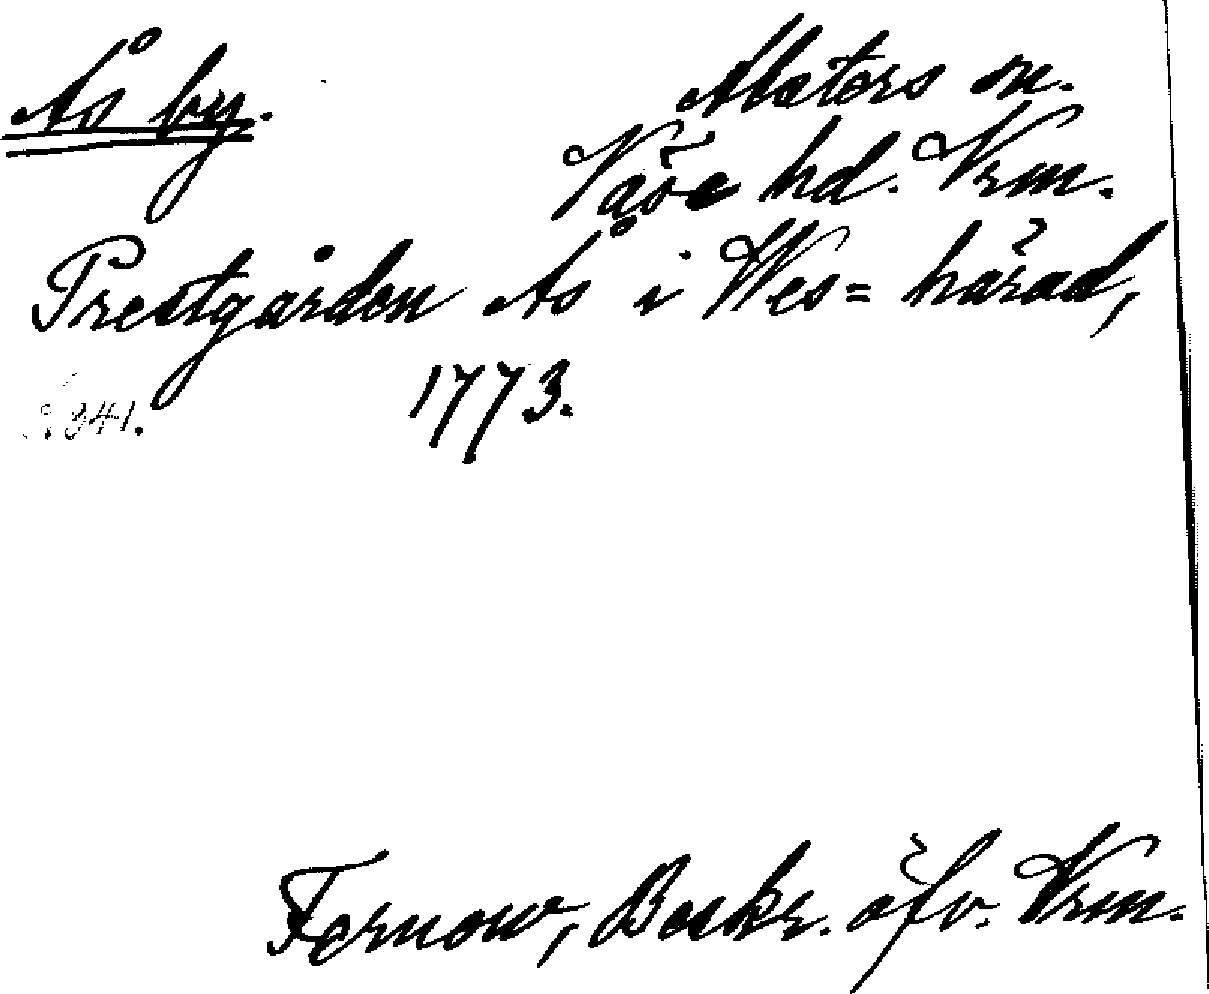 Ås by.
Alsters sn.
Väse hd. Vrm.
Prestgården Ås i Wes= härad,
1773.
s. 341.
Fernow, Beskr. öfv. Vrm.